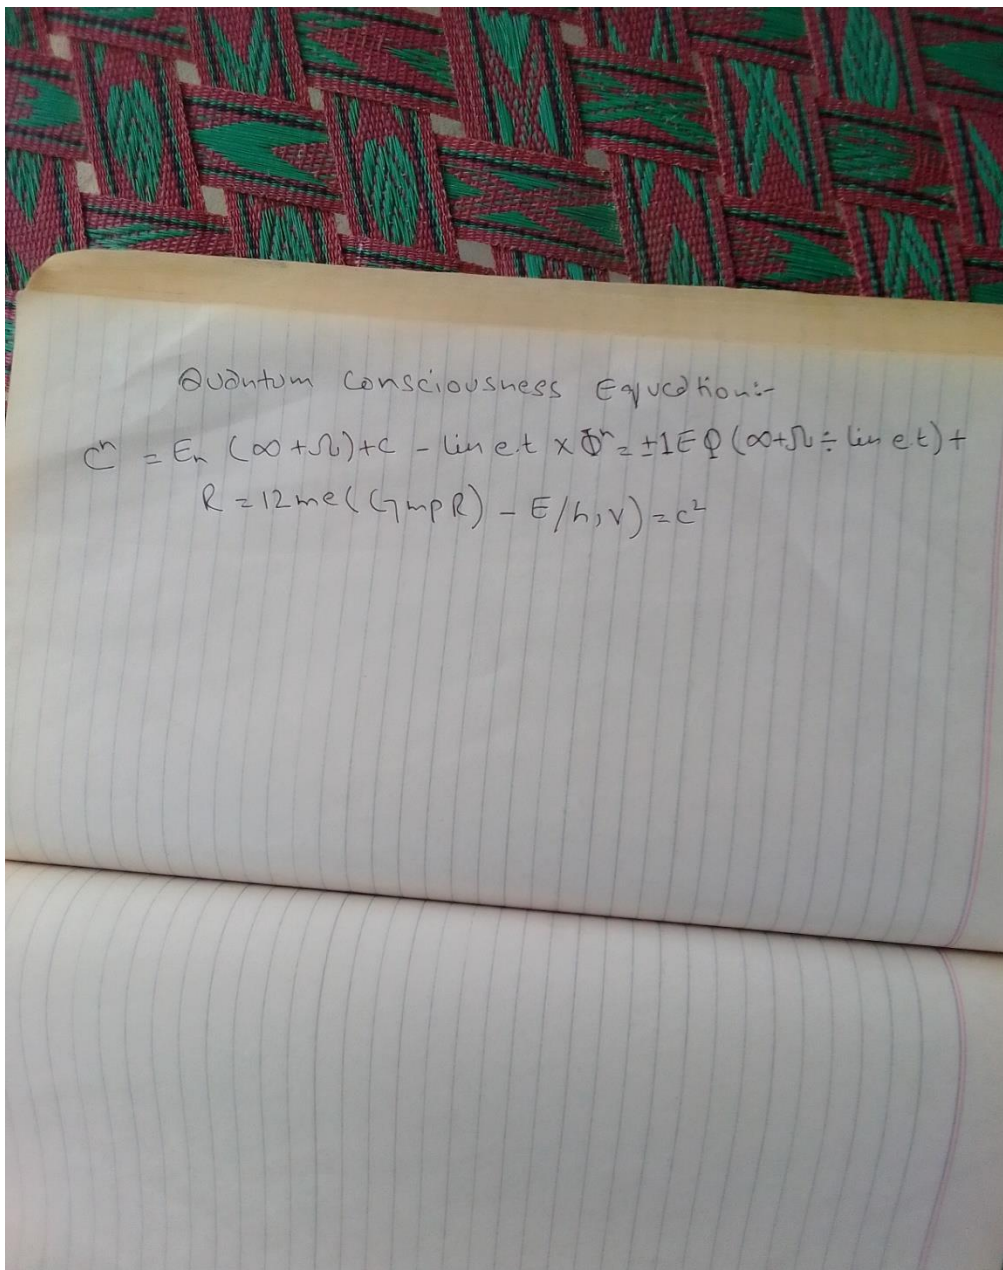 Quantum Consciousness Equcation:-
Cⁿ = Eₙ (∞+Ω)+c - lin e.t × Φⁿ = ±1EφQ (∞+Ω ÷ lin e.t) +
R = 12me( GmpR) - E/h,v) = c²